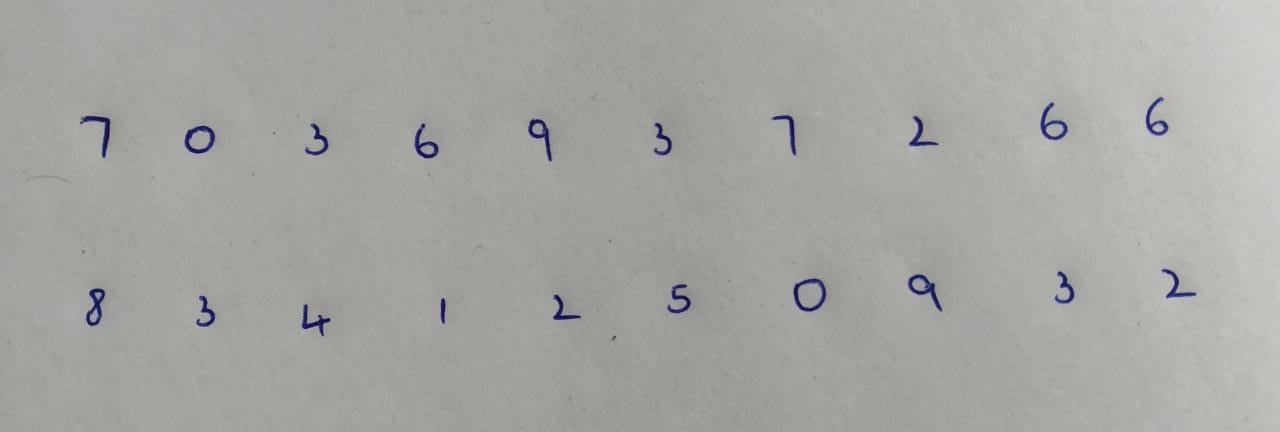 7 0 3 6 9 3 7 2 6 6
8 3 4 1 2 5 0 9 3 2